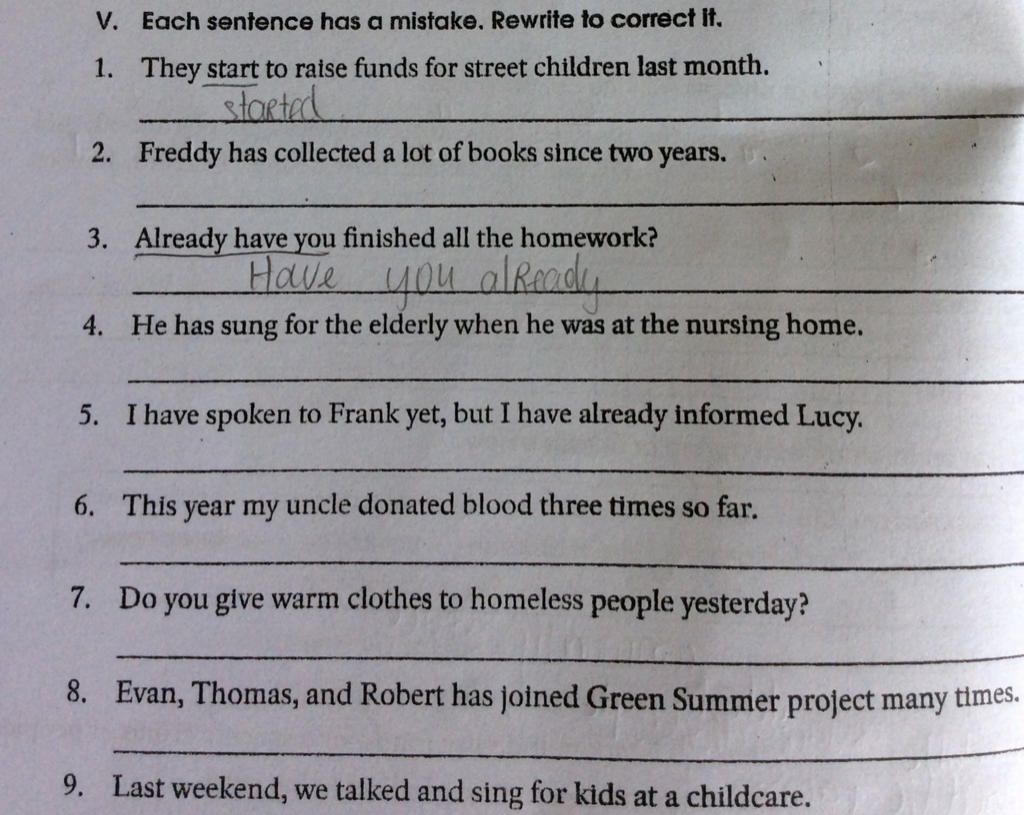 V. Each sentence has a mistake. Rewrite to correct it.
1. They start to raise funds for street children last month.
started
2. Freddy has collected a lot of books since two years.
3. Already have you finished all the homework?
Have you already
4. He has sung for the elderly when he was at the nursing home.
5. I have spoken to Frank yet, but I have already informed Lucy.
6. This year my uncle donated blood three times so far.
7. Do you give warm clothes to homeless people yesterday?
8. Evan, Thomas, and Robert has joined Green Summer project many times.
9. Last weekend, we talked and sing for kids at a childcare.